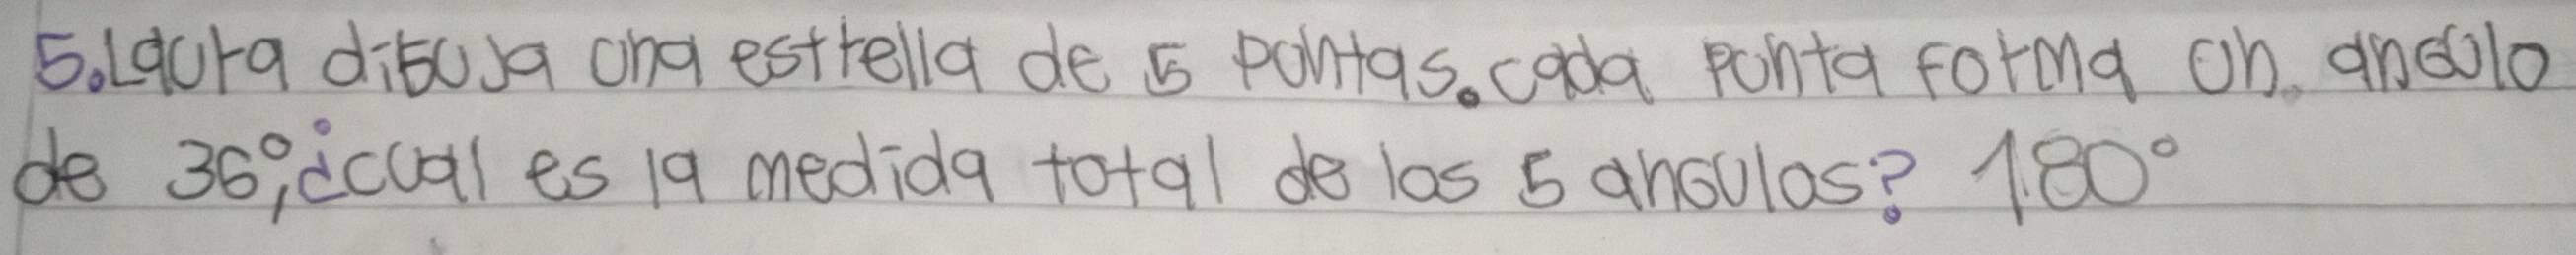 5. Laura dibuja una estrella de 5 puntas. cada punta forma un angulo
de 36°, ¿cual es la medida total de los 5 angulos? 180°